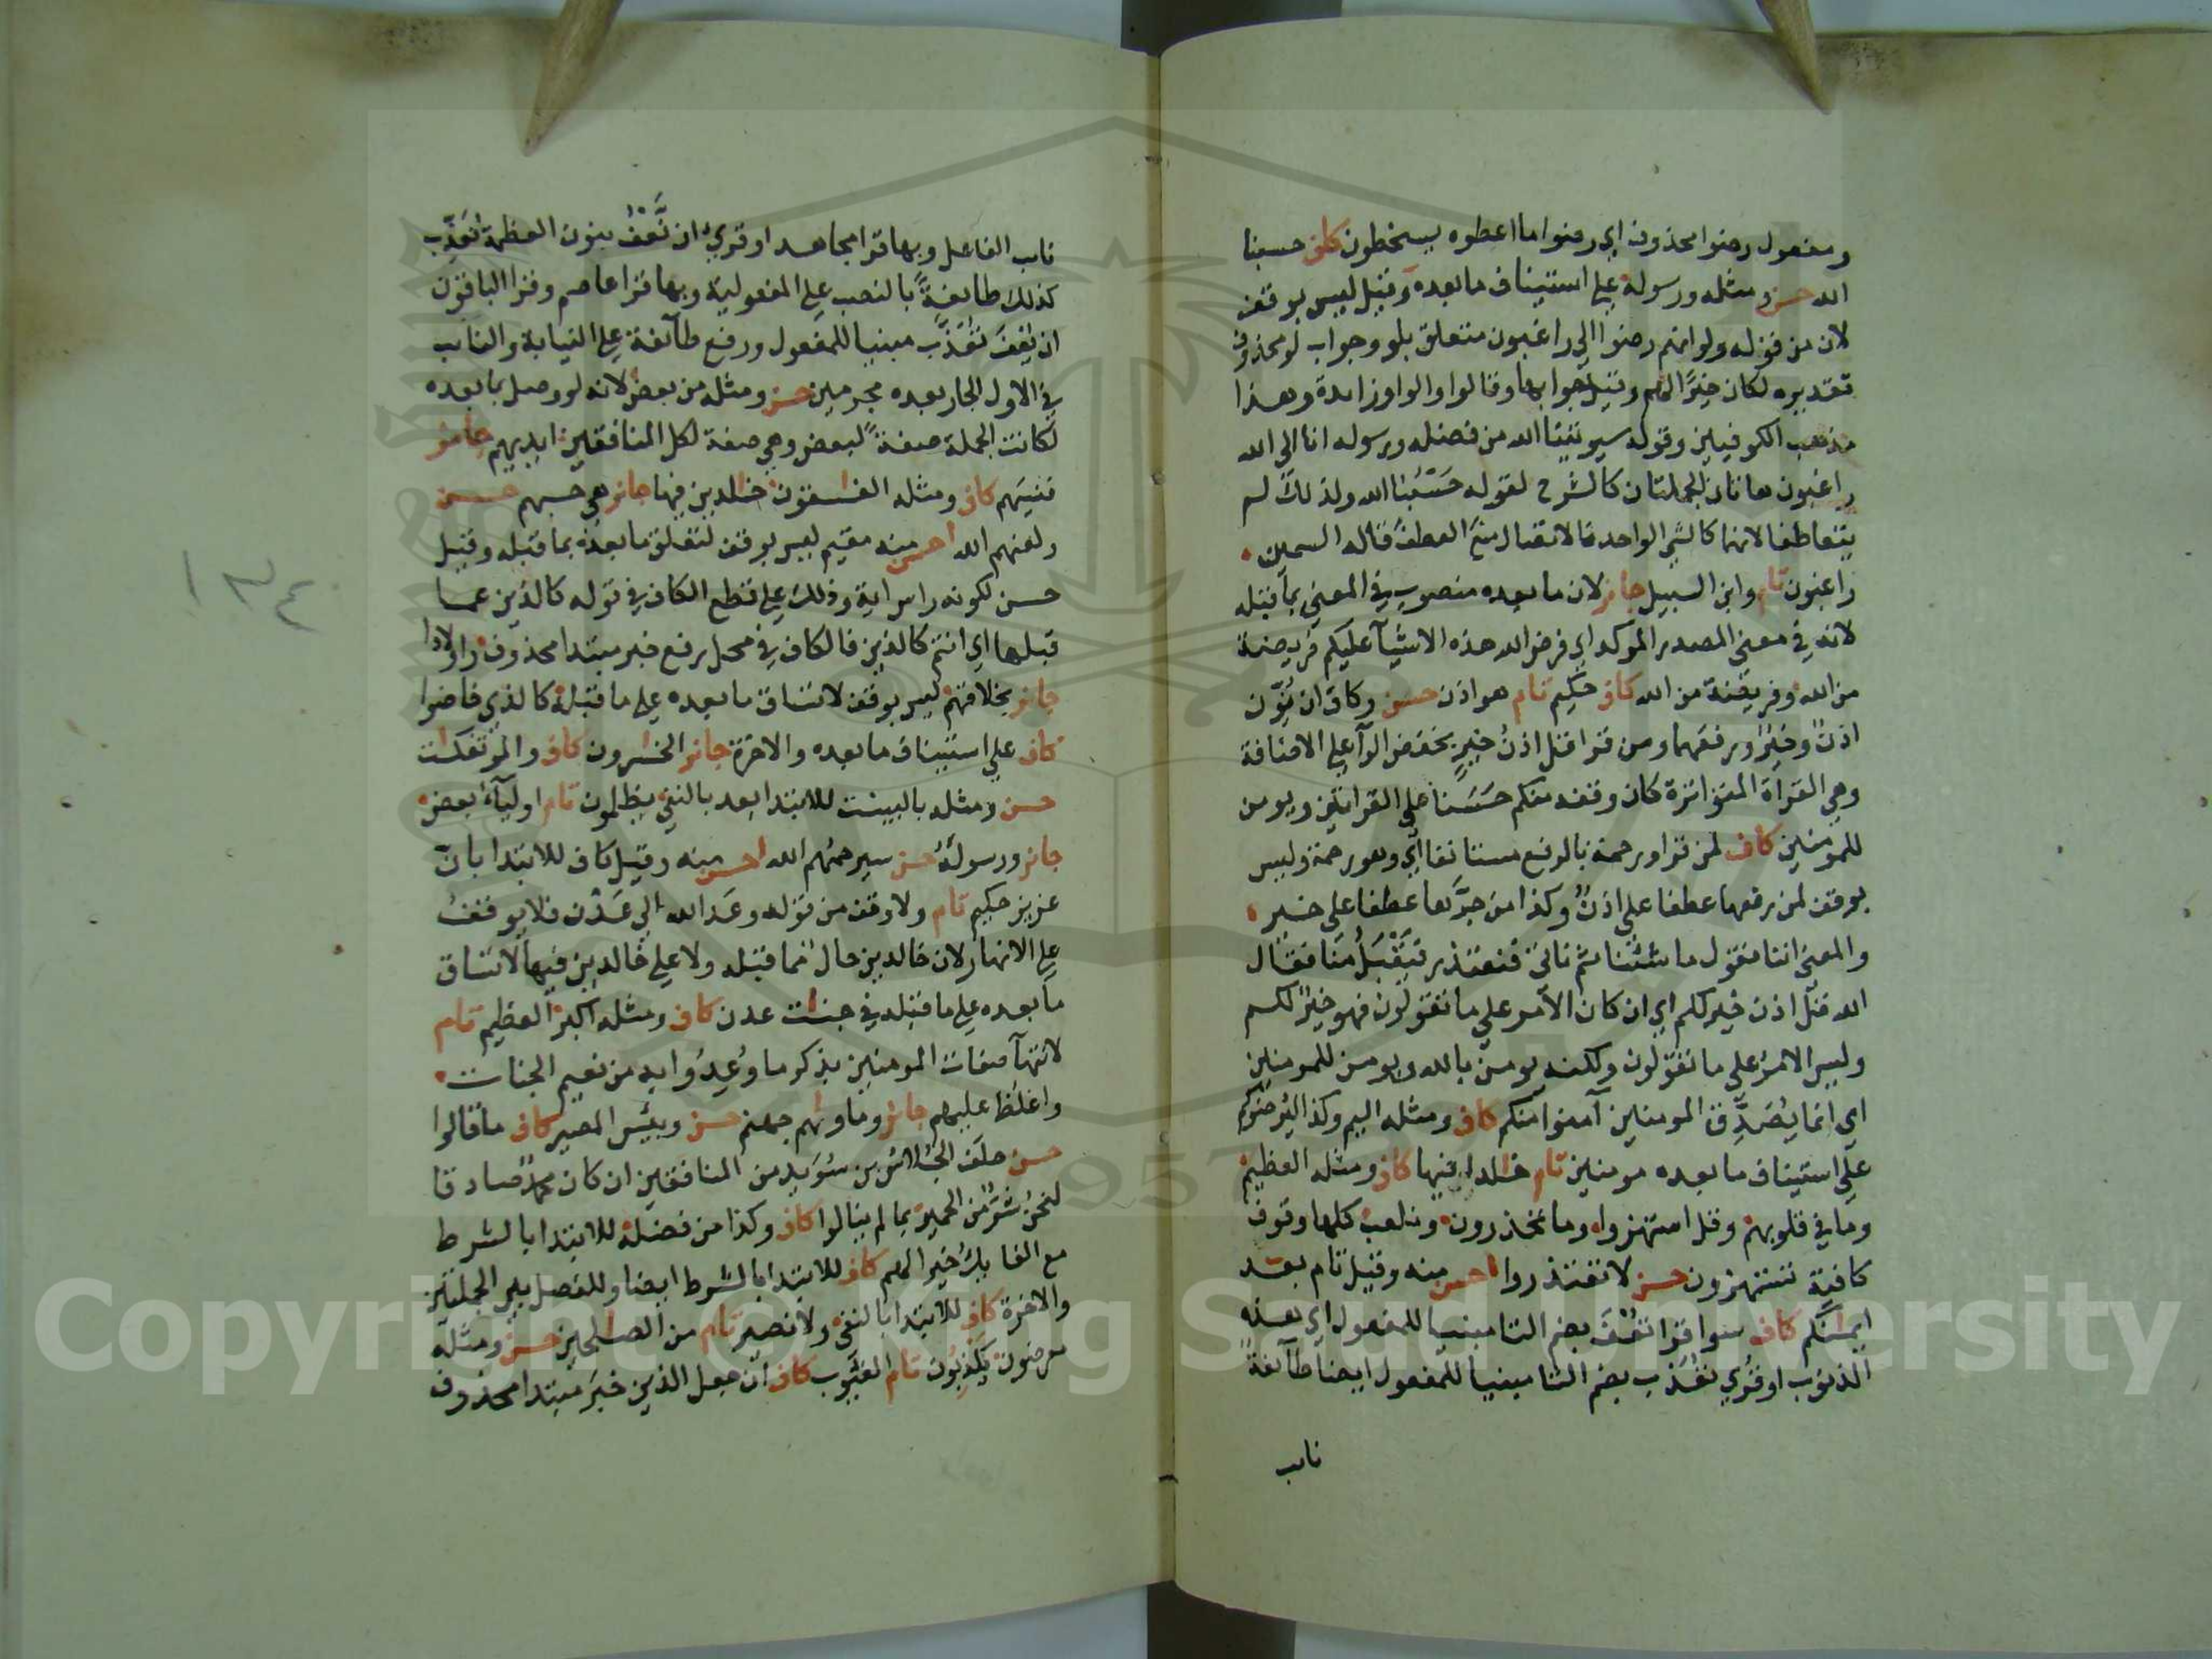 ومفعول رضوا محذوف اي رضوا ما اعطوه يسخطون كاف حسبنا
الله حسن ومثله ورسوله علي استيناف ما بعده وقيل ليس بوقف
لان من قوله ولو انهم رضوا الي راغبون متعلق بلو وجواب لو محذوف
تقديره لكان خيرًا لهم وقيل جوابها وقالوا والواو زايدة وهذا
مذهب الكوفيين وقوله سيوتينا الله من فضله ورسوله انا الي الله
راغبون هاتان الجملتان كالشرح لقوله حَسْبُنا الله ولذلك لم
يتعاطفا لانهما كالشي الواحد فالاتصال منع العطف قاله السمين
راغبون تام وابن السبيل جايز لان ما بعده منصوب في المعني بما قبله
لانه في معني المصدر الموكد اي فرض الله هذه الاشيآ عليكم فريضة
من الله وفريضة من الله كاف حكيم تام هو اذن حسن وكاف ان نُوّن
اذنٌ وخيرٌ ورفعهما ومن قرا قل اذنُ خيرٍ بخفض الرآ علي الاضافة
وهي القراة المتواترة كان وقفه منكم حَسَنا علي القراتين ويومن
للمومنين كاف لمن قرا ورحمة بالرفع مستانفا اي وهو رحمة وليس
بوقف لمن رفعها عطفا علي اذنٌ وكذا من جرَّها عطفا علي خير
والمعني اننا نقول ما شئنا ثم ناتي فنعتذر فَيَقْبَلُ منا فقال
الله قل اذن خير لكم اي ان كان الامر علي ما تقولون فهو خيرٌ لكم
وليس الامر علي ما تقولون ولكنه يومن بالله ويومن للمومنين
اي انما يُصَدِّق المومنين آمنوا منكم كاف ومثله اليم وكذا ليُرضوكم
علي استيناف ما بعده مومنين تام خلدا فيها كاف ومثله العظيم
وما في قلوبهم وقل استهزوا وما تحذرون ونلعب كلها وقوف
كافية تستهزون حسن لا تعتذروا احسن منه وقيل تام بعد
ايمنكم كاف سوا قرا تُعْفَ بضم التا مبنيا للمفعول اي هذه
الذنوب او قُري تُعَذَّب بضم التا مبنيا للمفعول ايضا طآئفةٌ
نايب
نايب الفاعل وبها قرا مجاهد او قري ان نَّعْفُ بنون العظمة نُعَذِّب
كذلك طايفةً بالنصب علي المفعولية وبها قرا عاصم وقرا الباقون
ان يُعْفَ تُعَذَّب مبنيا للمفعول ورفع طآئفة علي النيابة والنايب
في الاول الجار بعده مجرمين حسن ومثله من بعض لانه لو وصل بما بعده
لكانت الجملة صفةً لبعض وهي صفة لكل المنافقين ايديهم جايز
فنسيهم كاف ومثله الفسقون خلدين فيها جايز هي حسبهم حسن
ولعنهم الله احسن منه مقيم ليس بوقف لتعلق ما بعده بما قبله وقيل
حسن لكونه راس اية وذلك علي قطع الكاف في قوله كالذين عما
قبلها اي انتم كالذين فالكاف في محل رفع خبر مبتدا محذوف واولادا
جايز بخلاقهم ليس بوقف لاتساق ما بعده علي ما قبله كالذي خاضوا
كاف علي استيناف ما بعده والاخرة جايز الخسرون كاف والموتفكت
حسن ومثله بالبينت للابتدا بعد بالنفي يظلمون تام اوليآء بعض
جايز ورسولَه حسن سيرحمُهم الله احسن منه وقيل كاف للابتدا بان
عزيز حكيم تام ولا وقف من قوله وعَد الله الي عَدْن فلا يوقفُ
علي الانهار لان خالدين حال مما قبله ولا علي خالدين فيها لاتساق
ما بعده علي ما قبله في جنت عدن كاف ومثله اكبر العظيم تام
لانتهآ صفات المومنين بذكر ما وُعِدُوا به من نعيم الجنات
واغلظ عليهم جايز وماوىهم جهنم حسن وبيس المصير كاف ما قالوا
حسن حلَف الجُلاسُ بن سُوَيد من المنافقين ان كان محمدٌ صادقا
لنحنُ شرٌّ من الحمير بما لم ينالوا كاف وكذا من فضله للابتدا بالشرط
مع الفا يكُ خيرا لهم كاف للابتدا بالشرط ايضا وللفصل بين الجملتين
والاخرة كاف للابتدا بالنفي ولا نصير تام من الصلحين حسن ومثله
معرضون يكذِبُون تام الغُيُوب كاف ان جعل الذين خبرَ مبتدا محذوف
١٣٤
Copyright © King Saud University
1957